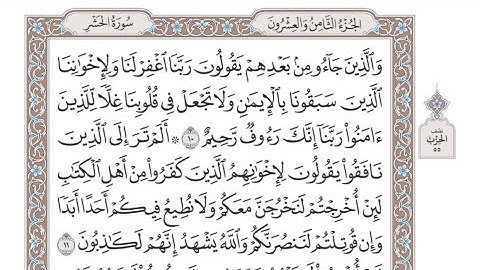 الجزء الثامن والعشرون
سورة الحشر
وَٱلَّذِينَ جَآءُو مِنۢ بَعْدِهِمْ يَقُولُونَ رَبَّنَا ٱغْفِرْ لَنَا وَلِإِخْوَٰنِنَا
ٱلَّذِينَ سَبَقُونَا بِٱلْإِيمَٰنِ وَلَا تَجْعَلْ فِى قُلُوبِنَا غِلًّا لِّلَّذِينَ
ءَامَنُوا۟ رَبَّنَآ إِنَّكَ رَءُوفٌ رَّحِيمٌ ١٠ ۞ أَلَمْ تَرَ إِلَى ٱلَّذِينَ
نَافَقُوا۟ يَقُولُونَ لِإِخْوَٰنِهِمُ ٱلَّذِينَ كَفَرُوا۟ مِنْ أَهْلِ ٱلْكِتَٰبِ
لَئِنْ أُخْرِجْتُمْ لَنَخْرُجَنَّ مَعَكُمْ وَلَا نُطِيعُ فِيكُمْ أَحَدًا أَبَدًا
وَإِن قُوتِلْتُمْ لَنَنصُرَنَّكُمْ وَٱللَّهُ يَشْهَدُ إِنَّهُمْ لَكَٰذِبُونَ ١١
نصف
الحزب
٥٥